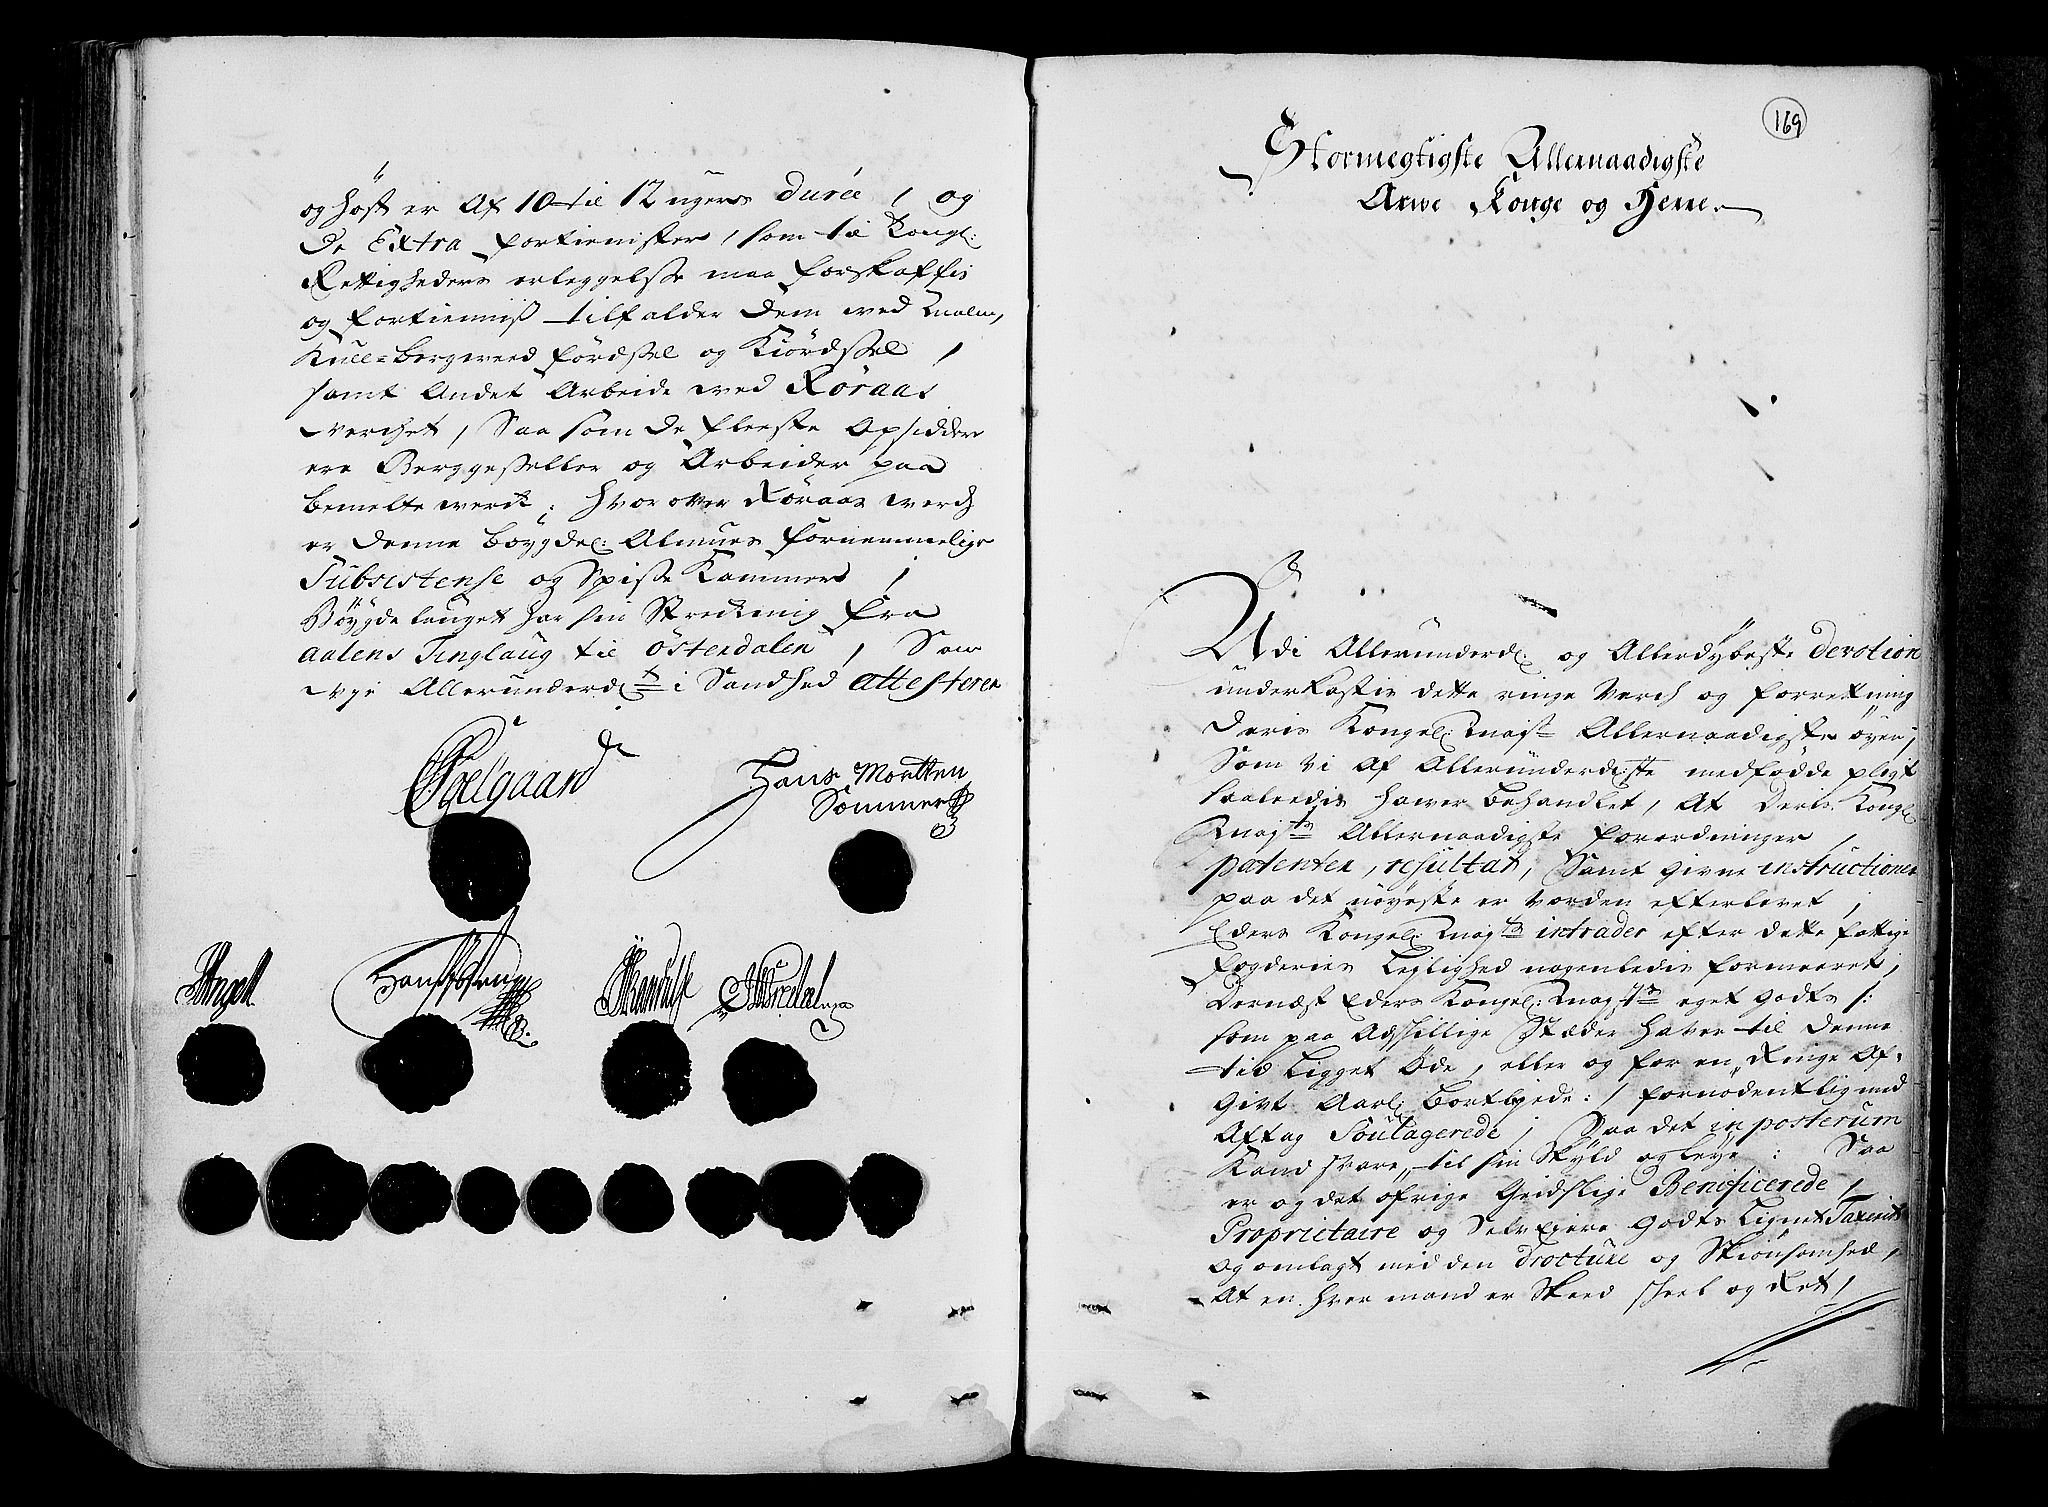 og høst er Af 10 til 12 ugers Durée, og
De Extra fortienister, som til Kongl:
Rettigheders erleggelse maa forskaffis
og fortienniß tilfalder Dem ved Malm,
Kull=bergweed førdssel og Kiørdssel,
samt Andet Arbeide wed Røraas
werchet, Saa som De fleeste Opsiddere
ere Berggeseller og Arbeider paa
bemelte werk; hvor over Røraas werch
er denne bøygdel: Almues fornemmelige
Subsistense og Spise Kammer,
Bøygdelauget har sin Streckning fra
aalens Tinglaug til österdalen, Som
wi Allerunderd: i Sandhed attesterer
Hans Mortten
Sommer
169
Stormegtigste Allernaadigste
Arwe Konge og Herre.
Udi Alleründerd: og Allerdybeste devotion
underkastis dette ringe Verch og forretning
Deris Kongel: Mayst: Allernaadigste øyen,
Som vi Af Alleründerdigste medfødde pligt
saaledis hawer behandlet, At Deris Kongl:
Mayts Allernaadigste forordninger,
patenter, resultat, Samt givne instructioner
paa det nøyeste er vorden efterlevet,
Eders Kongel: Mayts intrader efter dette fattige
fogderies Lejlighed nogenledis formeeret,
Dernæst Eders Kongel: Mayts eget Godts /:
som paa Adskillige Stæder haver til denne
tid Ligget Øde, eller og for en Ringe Af-
Givt Aarl: Bortbyede :/ fornødentlig med
Aftag Soulagerede, Saa det in posterum
Kand svare til sin Skyld og leye: Saa
er og det øfrige Geidslige Beneficerede,
Proprietaire og Selv Ejere Godts Lignet Taxerit
og omlagt med den Drocture og Skiønsomhed,
At en hver mand er Skeed skeel og Ret,